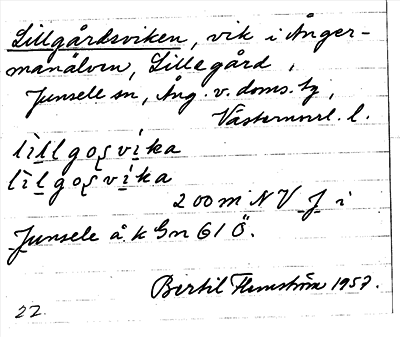 Lillgårdsviken, vik i Ånger-
manälven, Lillegård,
Junsele sn, Ång. v. doms. tg,
Västernorrl. l.
lìllgoʂvìka
lìlgoʂvìka
200 m NV J i
Junsele å. k Gn 61 Ö.
Bertil Flemström 1957.
22.